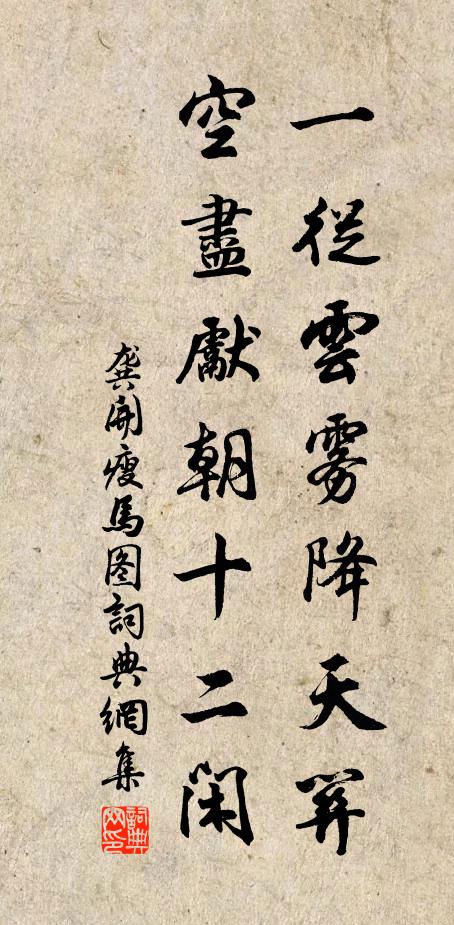 一從雲霧降天關
空盡獻朝十二閑
龔開瘦馬圖詞典網集
詞典
网印